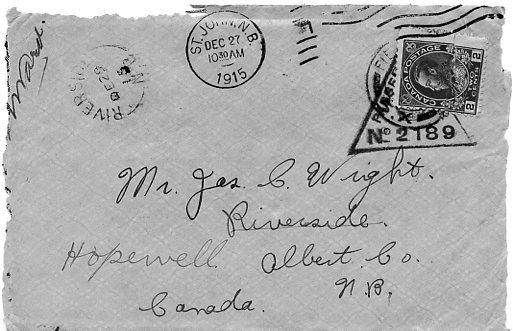 Ward
RIVERSIDE
DE 29
15
N.B.
ST. JOHN, N.B.
DEC 27
10 30 AM
1915
CANADA POSTAGE
2 CENTS 2
No 2189
Mr. Jas. C. Wright.
Riverside.
Hopewell Albert Co.
N.B.
Canada.